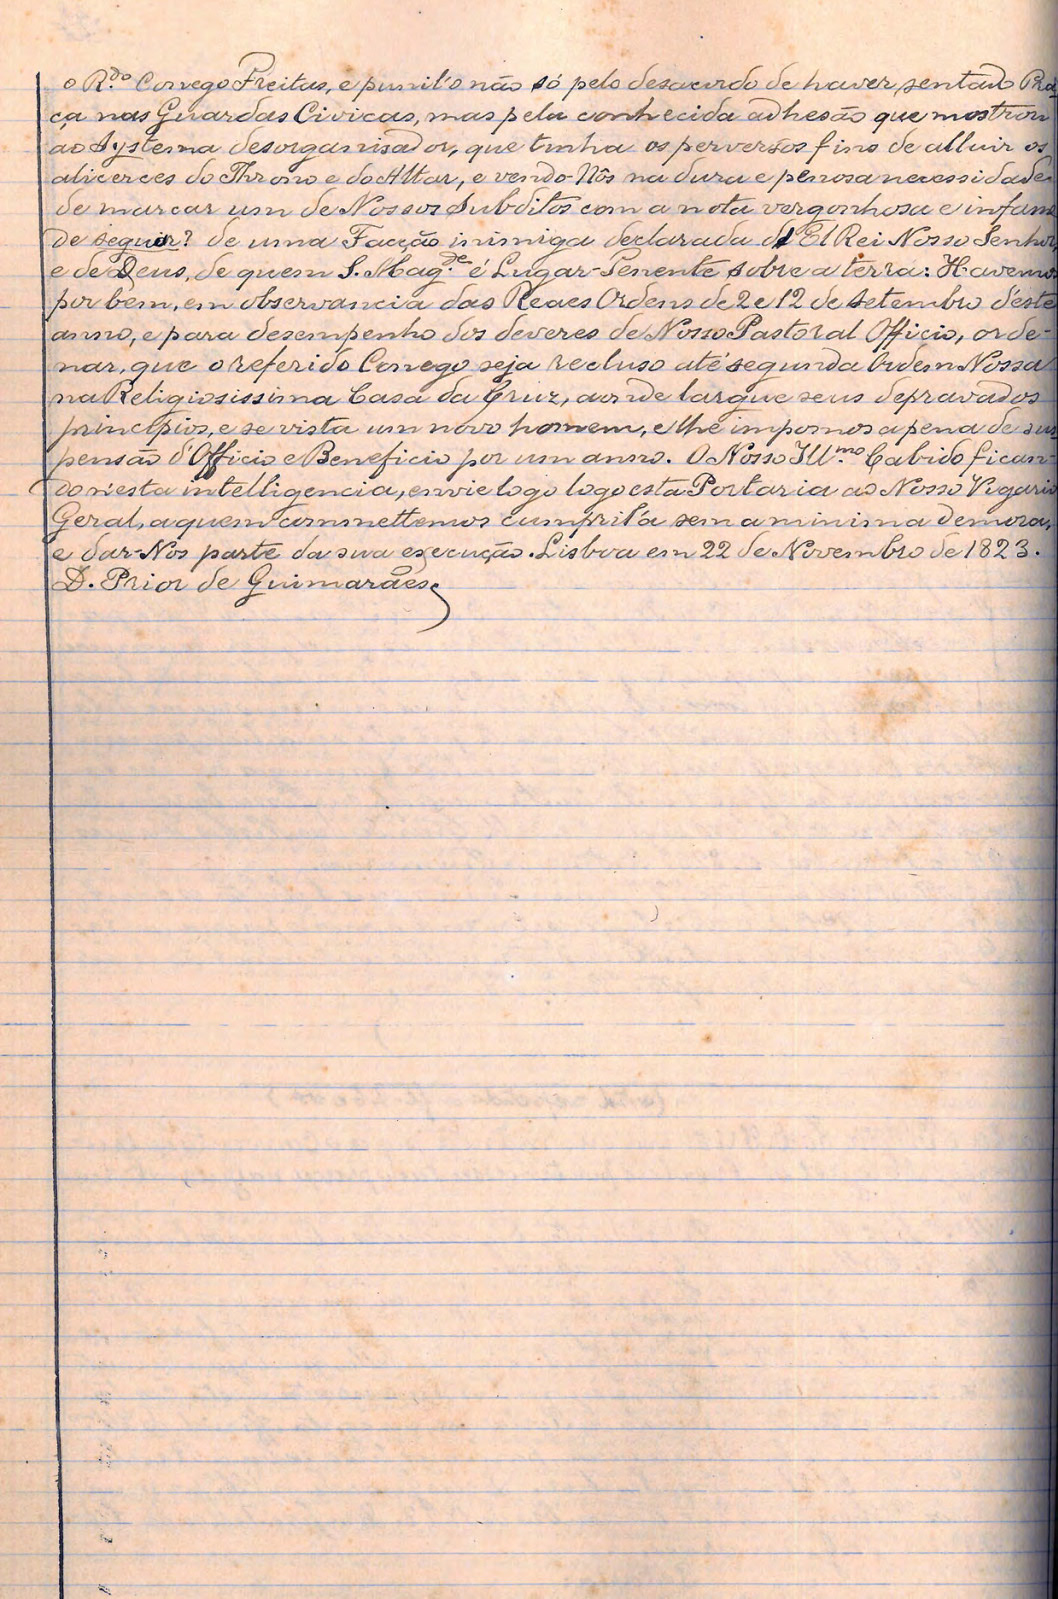 o R.do Conego Freitas, e punil'o não só pelo desacordo de haver, sentado Pra-
ça nas Guardas Civicas, mas pela conhecida adhesão que mostrou
ao Systema desorganisador, que tinha os perversos fins de alluir os
alicerces do Throno e do Altar, e vendo-Nós na dura e penosa necessidade
de marcar um de Nossos Subditos com a nota vergonhosa e infame
de seguir? de uma Facção inimiga declarada d'El Rei Nosso Senhor,
e de Deus, de quem S. Mag.de é Lugar-Tenente sobre a terra: Havemos
por bem, em observancia das Reaes Ordens de 2 e 12 de Setembro d'este
anno, e para desempenho dos deveres de Nosso Pastoral Officio, orde-
nar, que o referido Conego seja recluso até segunda Ordem Nossa
na Religiosissima Casa da Cruz, aonde largue seus depravados
principios, e se vista um novo homem, e lhe impomos a pena de sus-
pensão d'Officio e Beneficio por um anno. O Nosso Ill.mo Cabido fican-
do n'esta intelligencia, envie logo logo esta Portaria ao Nosso Vigario
Geral, a quem commettemos cumpril'a sem a minima demora,
e dar-Nos parte da sua execução. Lisboa em 22 de Novembro de 1823.
D. Prior de Guimarães.